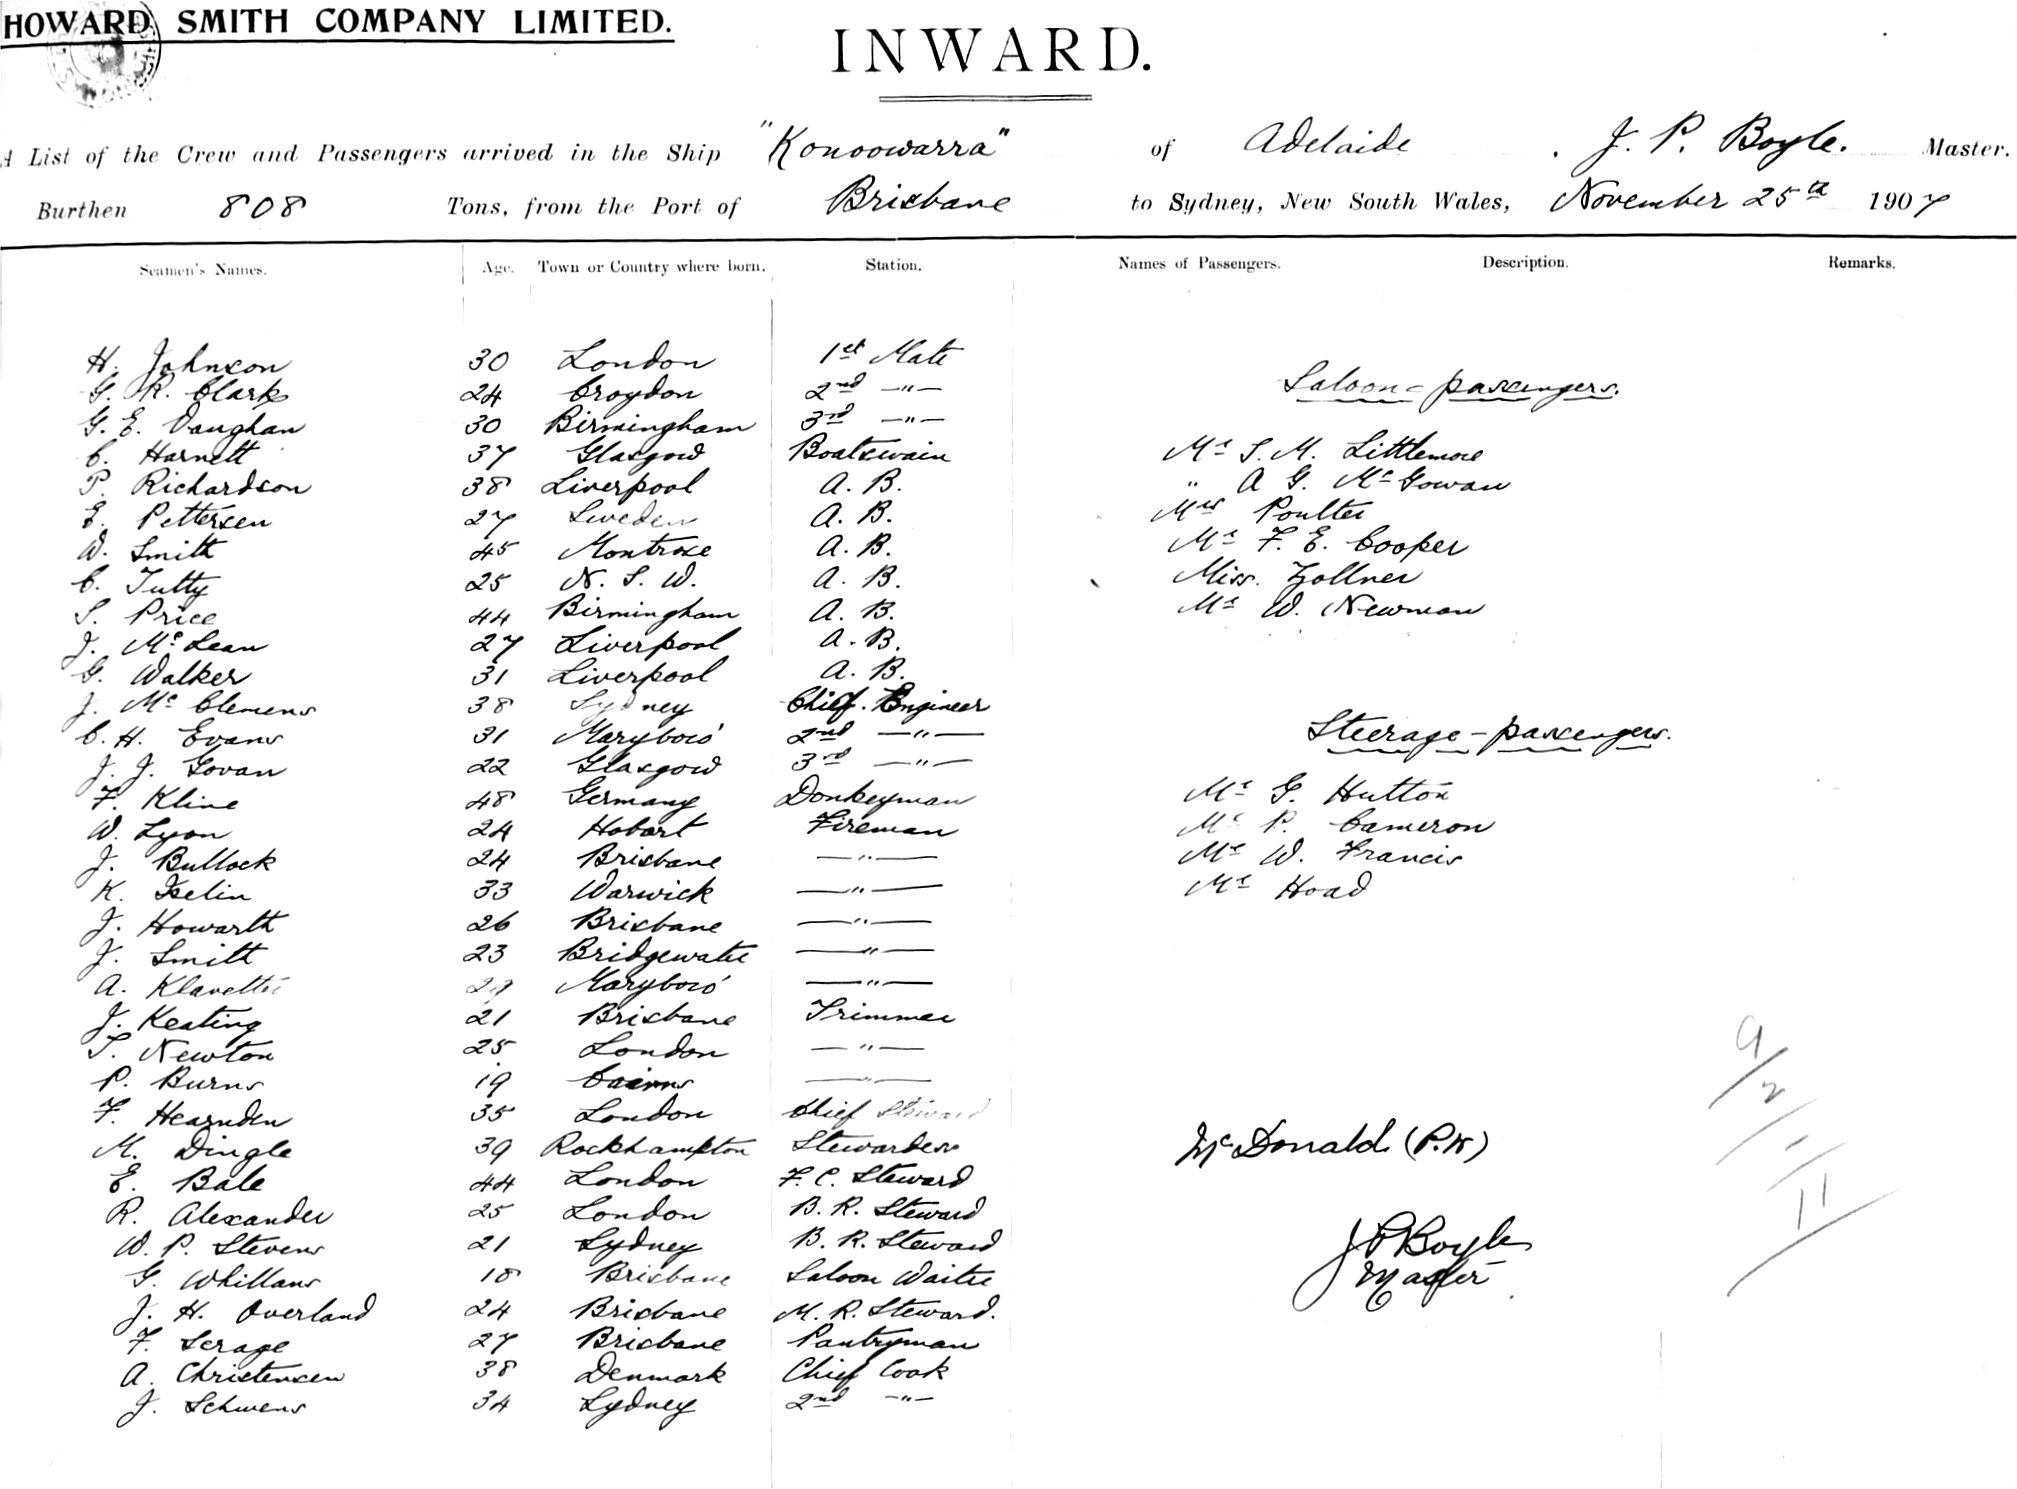 HOWARD SMITH COMPANY LIMITED.
INWARD.
A List of the Crew and Passengers arrived in the Ship "Konoowarra" of Adelaide , J. P. Boyle. Master.
Burthen 808 Tons, from the Port of Brisbane to Sydney, New South Wales, November 25th 1907
Seamen's Names. Age. Town or Country where born. Station. Names of Passengers. Description. Remarks.
H. Johnson 30 London 1st Mate
G. R. Clark 24 Croydon 2nd —"—
G. E. Vaughan 30 Birmingham 3rd —"—
C. Harnett 37 Glasgow Boatswain
P. Richardson 38 Liverpool A. B.
E. Pettersen 27 Sweden A. B.
W. Smith 45 Montrose A. B.
C. Tutty 25 N. S. W. A. B.
S. Price 44 Birmingham A. B.
J. McLean 27 Liverpool A. B.
G. Walker 31 Liverpool A. B.
J. McClemens 38 Sydney Chief. Engineer
C. H. Evans 31 Maryboro' 2nd —"—
J. J. Govan 22 Glasgow 3rd —"—
F. Kline 48 Germany Donkeyman
W. Lyon 24 Hobart Fireman
J. Bullock 24 Brisbane —"—
K. Iselin 33 Warwick —"—
J. Howarth 26 Brisbane —"—
J. Smith 23 Bridgewater —"—
A. Maryboro' —"—
J. Keating 21 Brisbane Trimmer
T. Newton 25 London —"—
P. Burns 19 Cairns —"—
F. Hearnden 35 London Chief Steward
M. Dingle 39 Rockhampton Stewardess
E. Bale 44 London F. C. Steward
R. Alexander 25 London B. R. Steward
W. P. Stevens 21 Sydney B. R. Steward
G. Whillans 18 Brisbane Saloon Waiter
J. H. Overland 24 Brisbane M. R. Steward.
F. Scrage 27 Brisbane Pantryman
A. Christensen 38 Denmark Chief Cook
J. Schwens 34 Sydney 2nd —"—
Saloon-passengers.
Mr S. M. Littlemore
" A G. McGowan
Mrs Poulter
Mr F. E. Cooper
Miss. Zollner
Mr W. Newman
Steerage-passengers.
Mr G. Hutton
Mr P. Cameron
Mr W. Francis
Mr Hoad
McDonald (P.W)
J P Boyle
Master
9/2
11